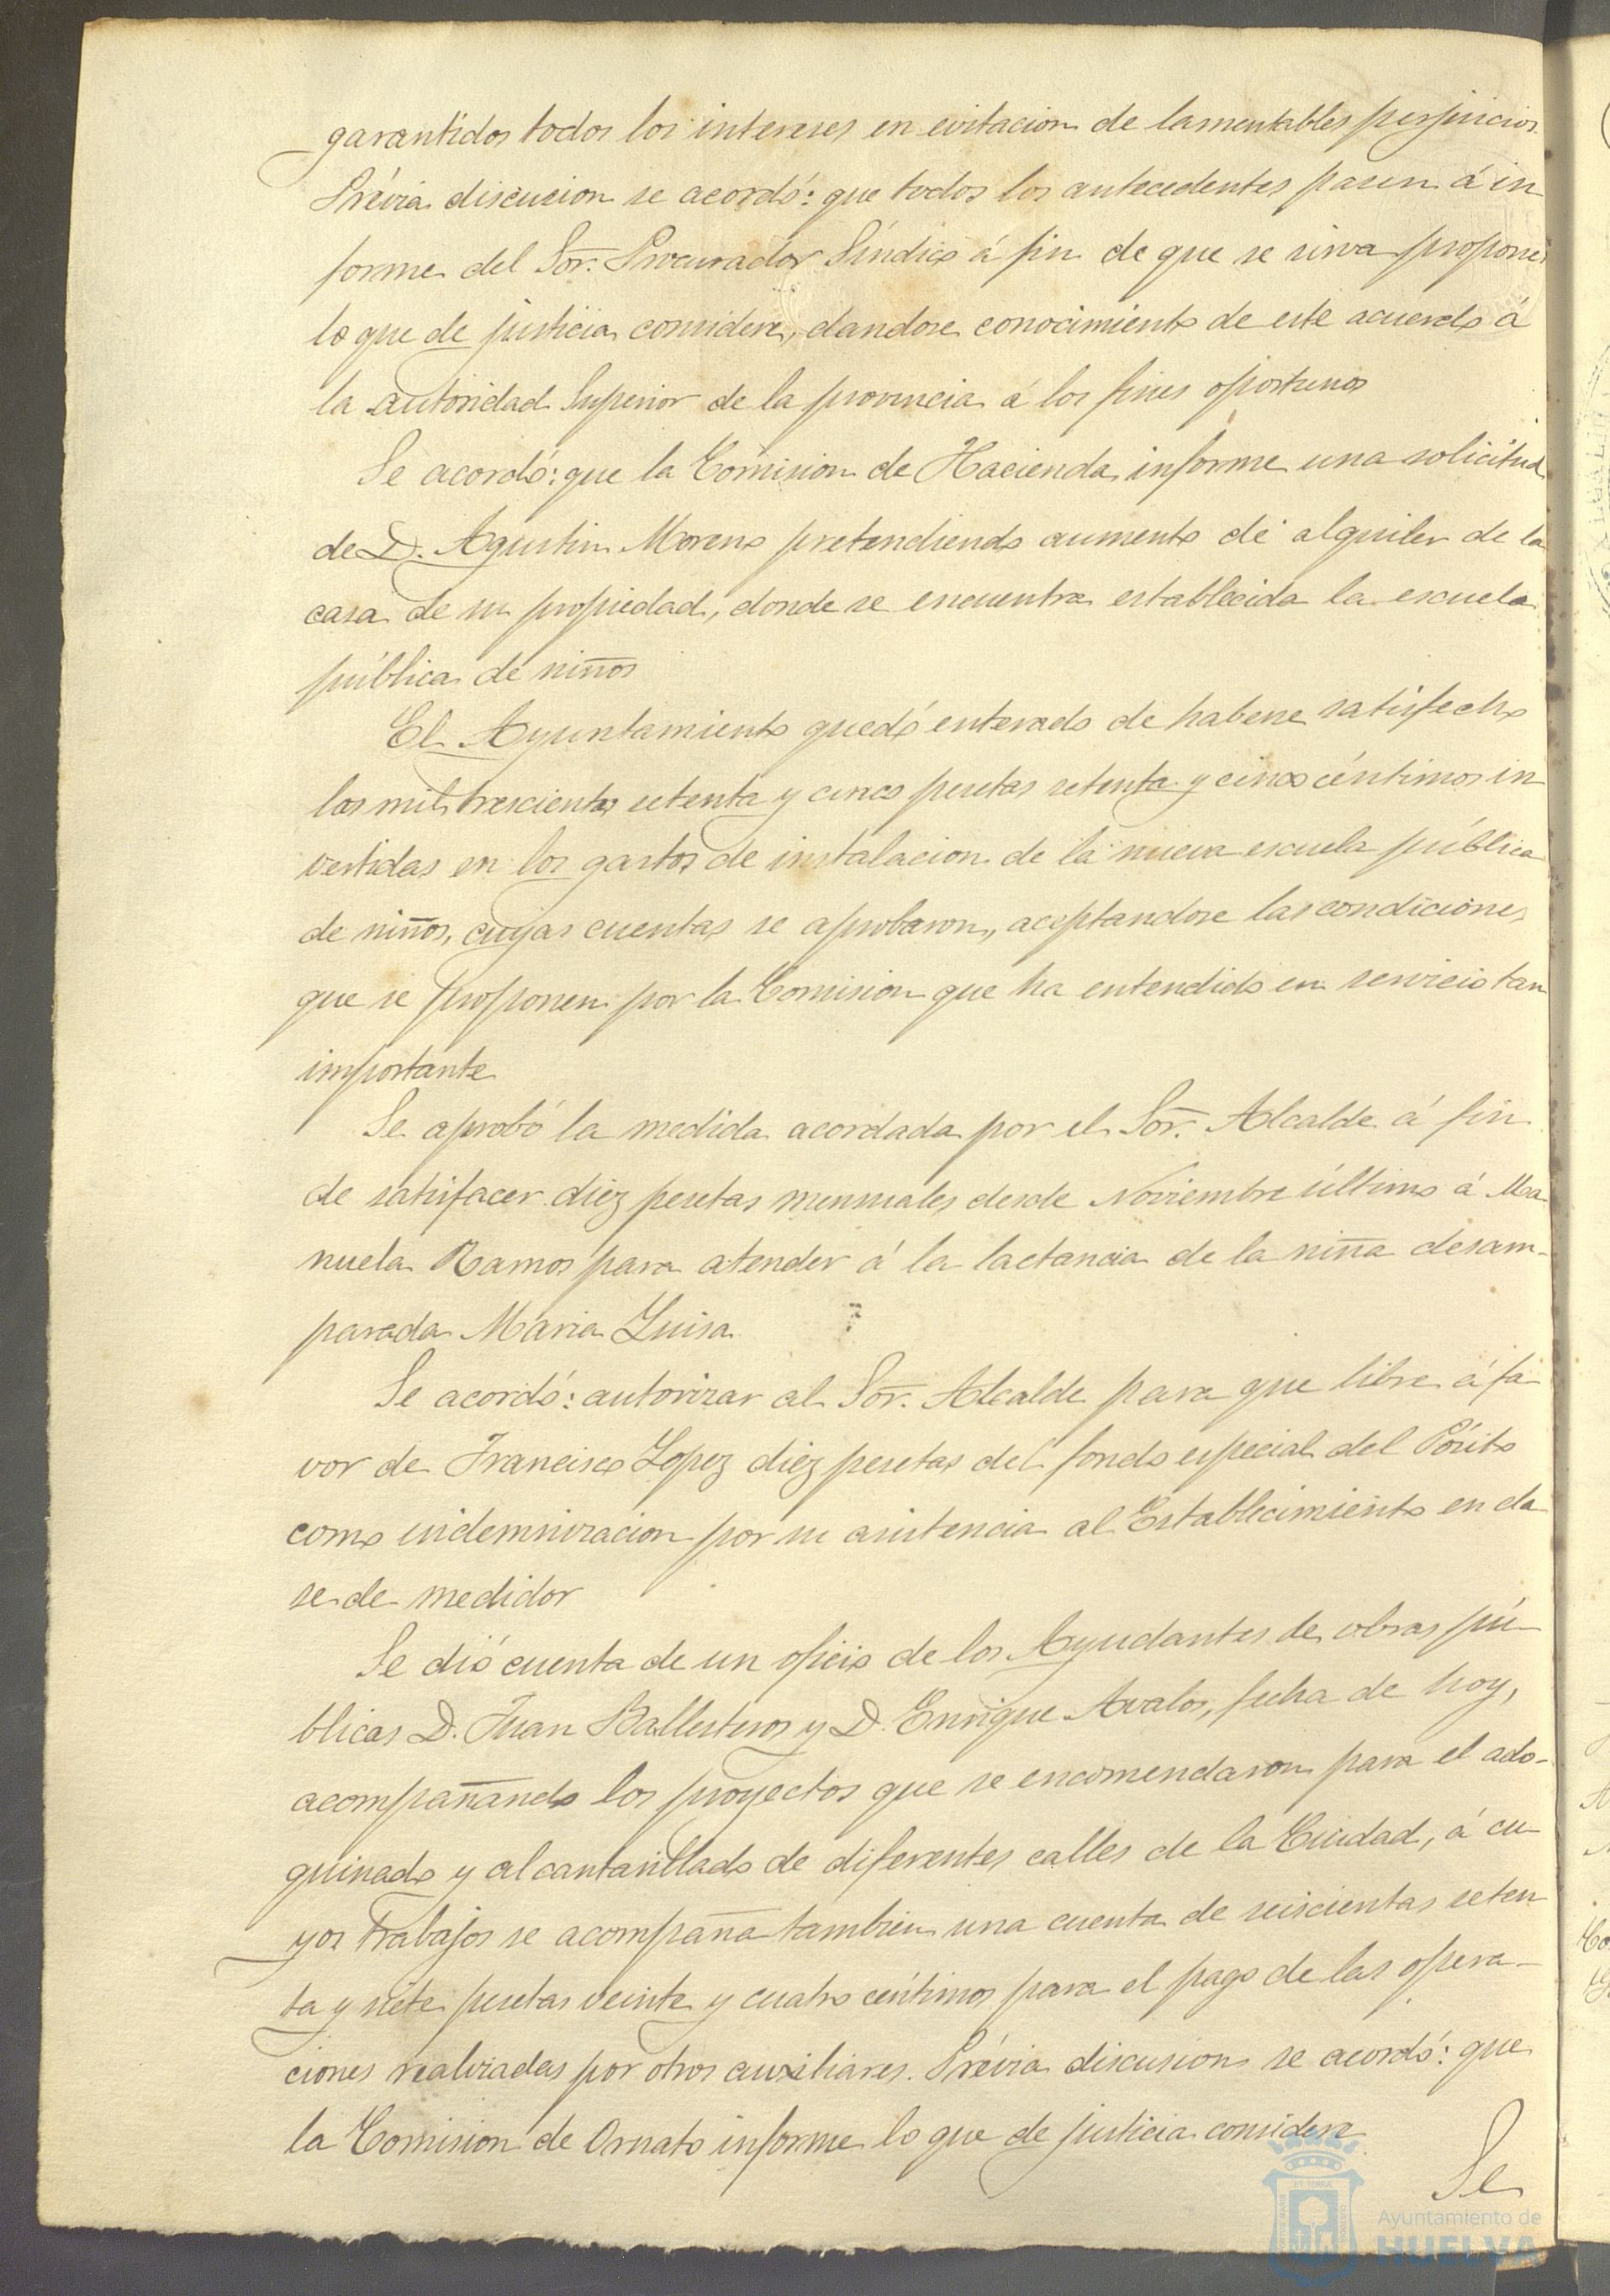 garantidos todos los intereses en evitacion de lamentables perjuicios.
Prévia discusion se acordó: que todos los antecedentes pasen á in
forme del Sor. Procurador Síndico á fin de que se sirva proponer
lo que de justicia considere, dandose conocimiento de este acuerdo á
la autoridad Superior de la provincia á los fines oportunos
Se acordó: que la Comision de Hacienda informe una solicitud
de D. Agustin Moreno pretendiendo aumento de alquiler de la
casa de su propiedad, donde se encuentra establecida la escuela
pública de niños
El Ayuntamiento quedó enterado de haberse satisfecho
las mil trescientas setenta y cinco pesetas setenta y cinco céntimos in
vertidas en los gastos de instalacion de la nueva escuela pública
de niños, cuyas cuentas se aprobaron, aceptandose las condiciones
que se proponen por la Comision que ha entendido en servicio tan
importante
Se aprobó la medida acordada por el Sor. Alcalde á fin
de satisfacer diez pesetas mensuales desde Noviembre último á Ma-
nuela Ramos para atender á la lactancia de la niña desam-
parada Maria Luisa
Se acordó: autorizar al Sor. Alcalde para que libre á fa
vor de Francisco Lopez diez pesetas del fondo especial del Pósito
como indemnizacion por su asistencia al Establecimiento en cla
se de medidor
Se dió cuenta de un oficio de los Ayudantes de obras pú-
blicas D. Juan Ballesteros y D. Enrique Avalos, fecha de hoy,
acompañando los proyectos que se encomendaron para el ado-
quinado y alcantarillado de diferentes calles de la Ciudad, á cu-
yos trabajos se acompaña tambien una cuenta de seiscientas seten
ta y siete pesetas veinte y cuatro céntimos para el pago de las opera-
ciones realizadas por otros auxiliares. Prévia discusion se acordó: que
la Comision de Ornato informe lo que de justicia considere
Se
Ayuntamiento de
HUELVA